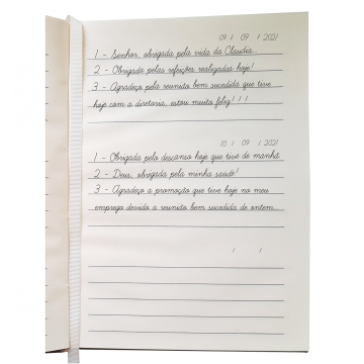 09 / 09 / 2021
1 - Senhor, obrigada pela vida da Claudia.
2 - Obrigada pelas refeições realizadas hoje!
3 - Agradeço pela reunião bem sucedida que tive
hoje com a diretoria, estou muito feliz! ! !
10 / 09 / 2021
1 - Obrigada pelo descanso hoje que tive de manhã.
2 - Deus, obrigada pela minha saúde!
3 - Agradeço a promoção que tive hoje no meu
emprego devido a reunião bem sucedida de ontem.
/ /